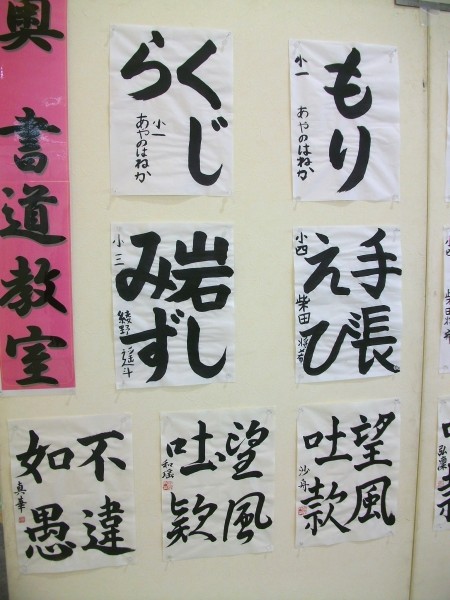 奥 書道教室
もり
小一 あやのはねか
くじ
ら
小一
あやのはねか
手張
えび
小四 柴田
岩し
みず
小三 綾野
望風
吐款
沙舟
望風
吐款
和瑶
不違
如愚
真華
小四
弘薫